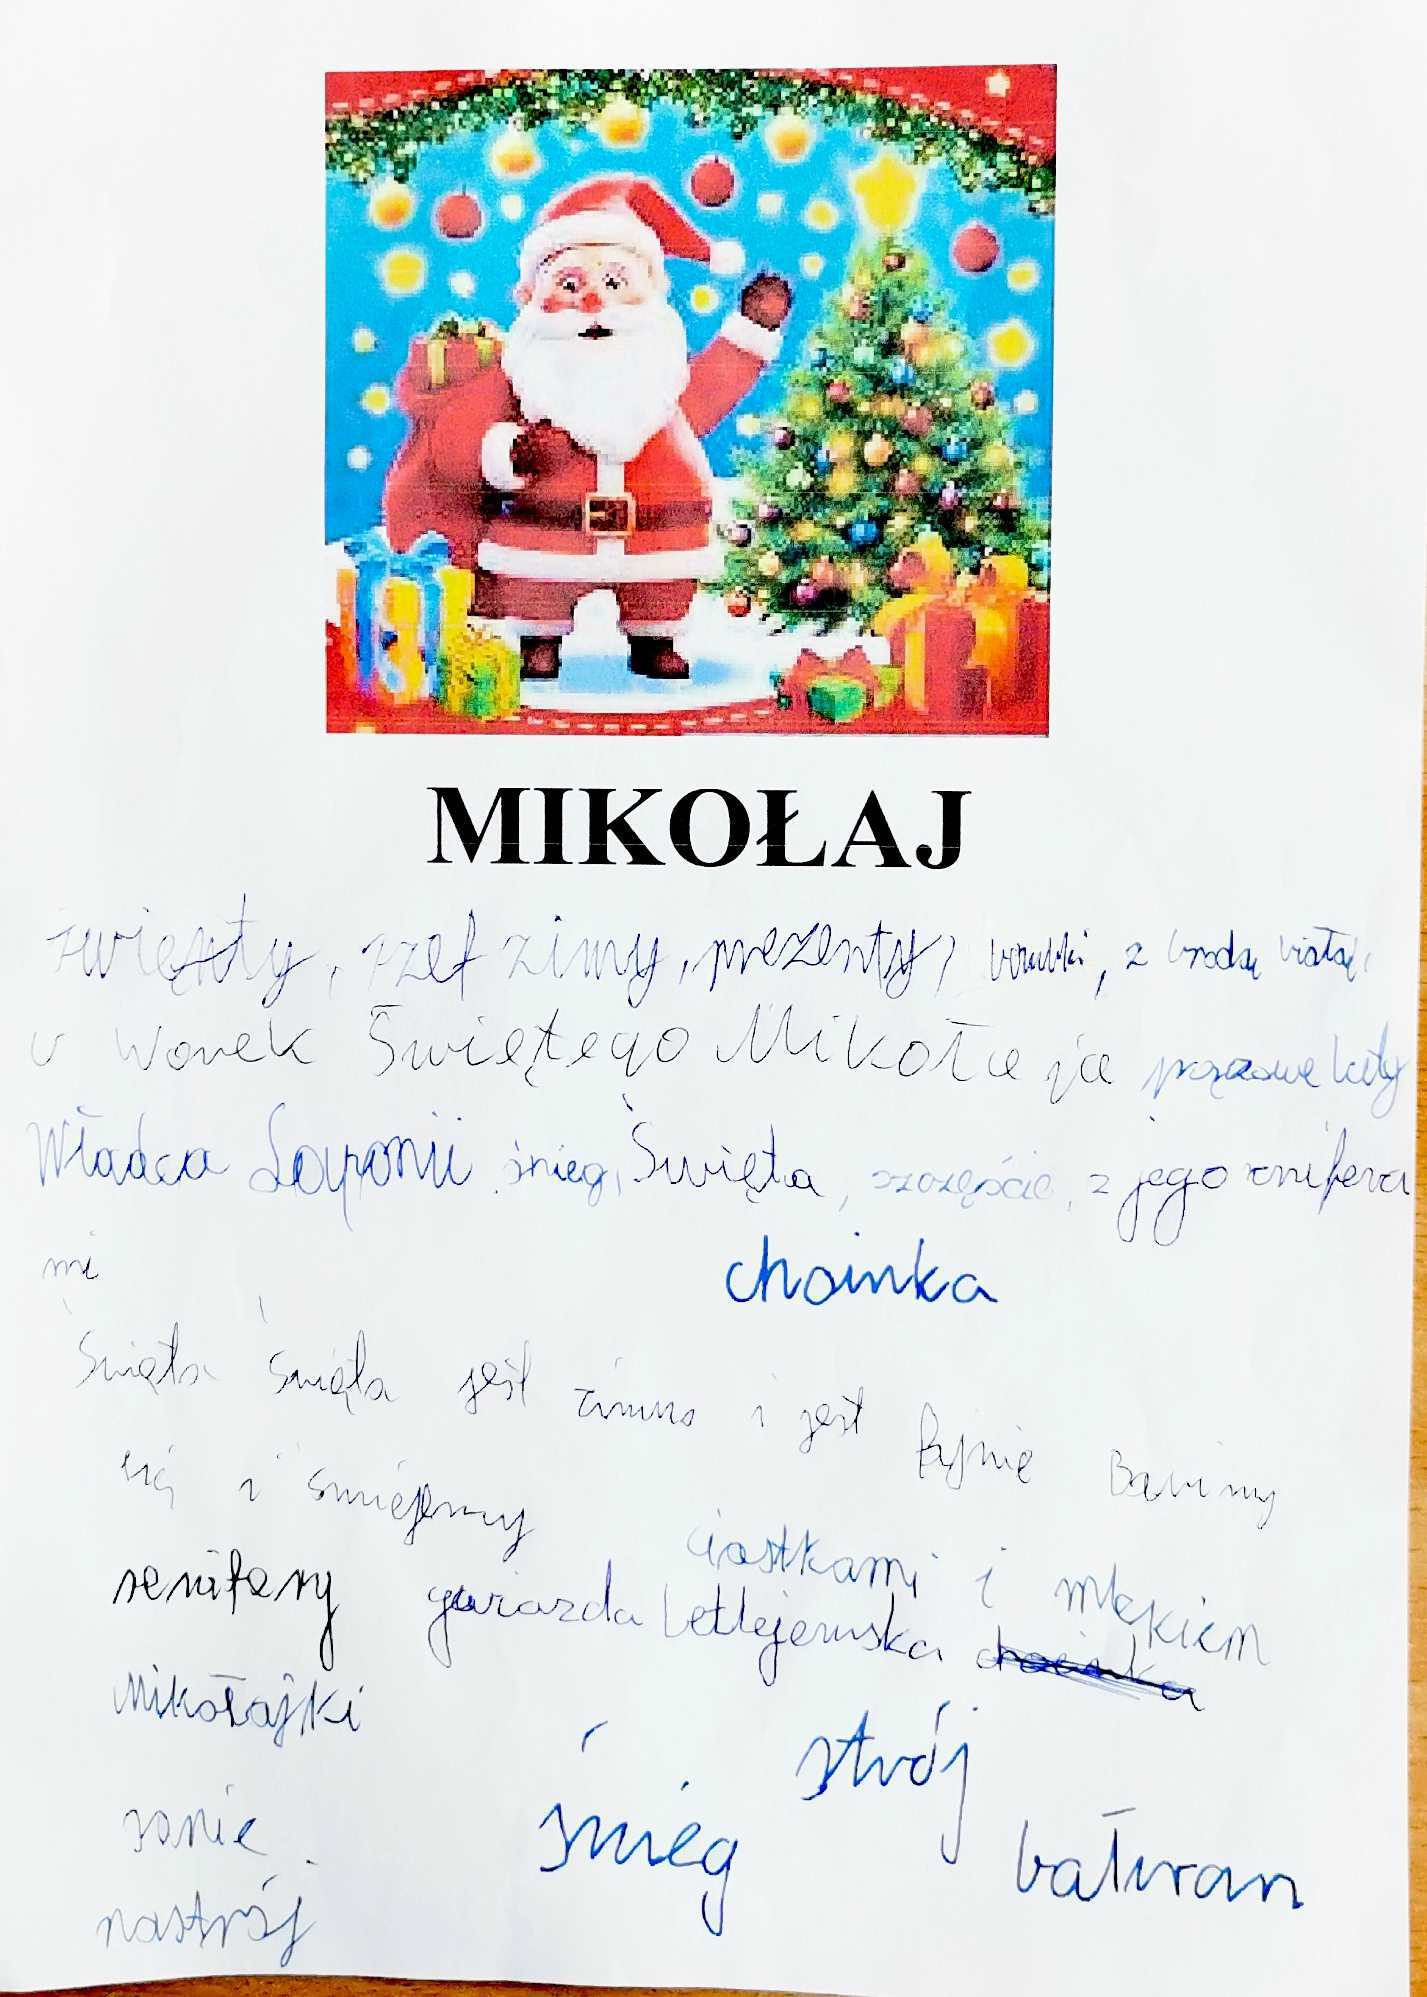 MIKOŁAJ
święty, szef zimy, prezenty, bombki, z brodą białą,
worek Świętego Mikołaja
Władca Laponii śnieg, Święta, szczęście, z jego renifera
mi choinka
Święta Święta jest zimno i jest fajnie Bawimy
się i śmiejemy ciastkami i mlekiem
renifery gwiazda betlejemska choinka
Mikołajki
strój
sanie śnieg bałwan
nastrój